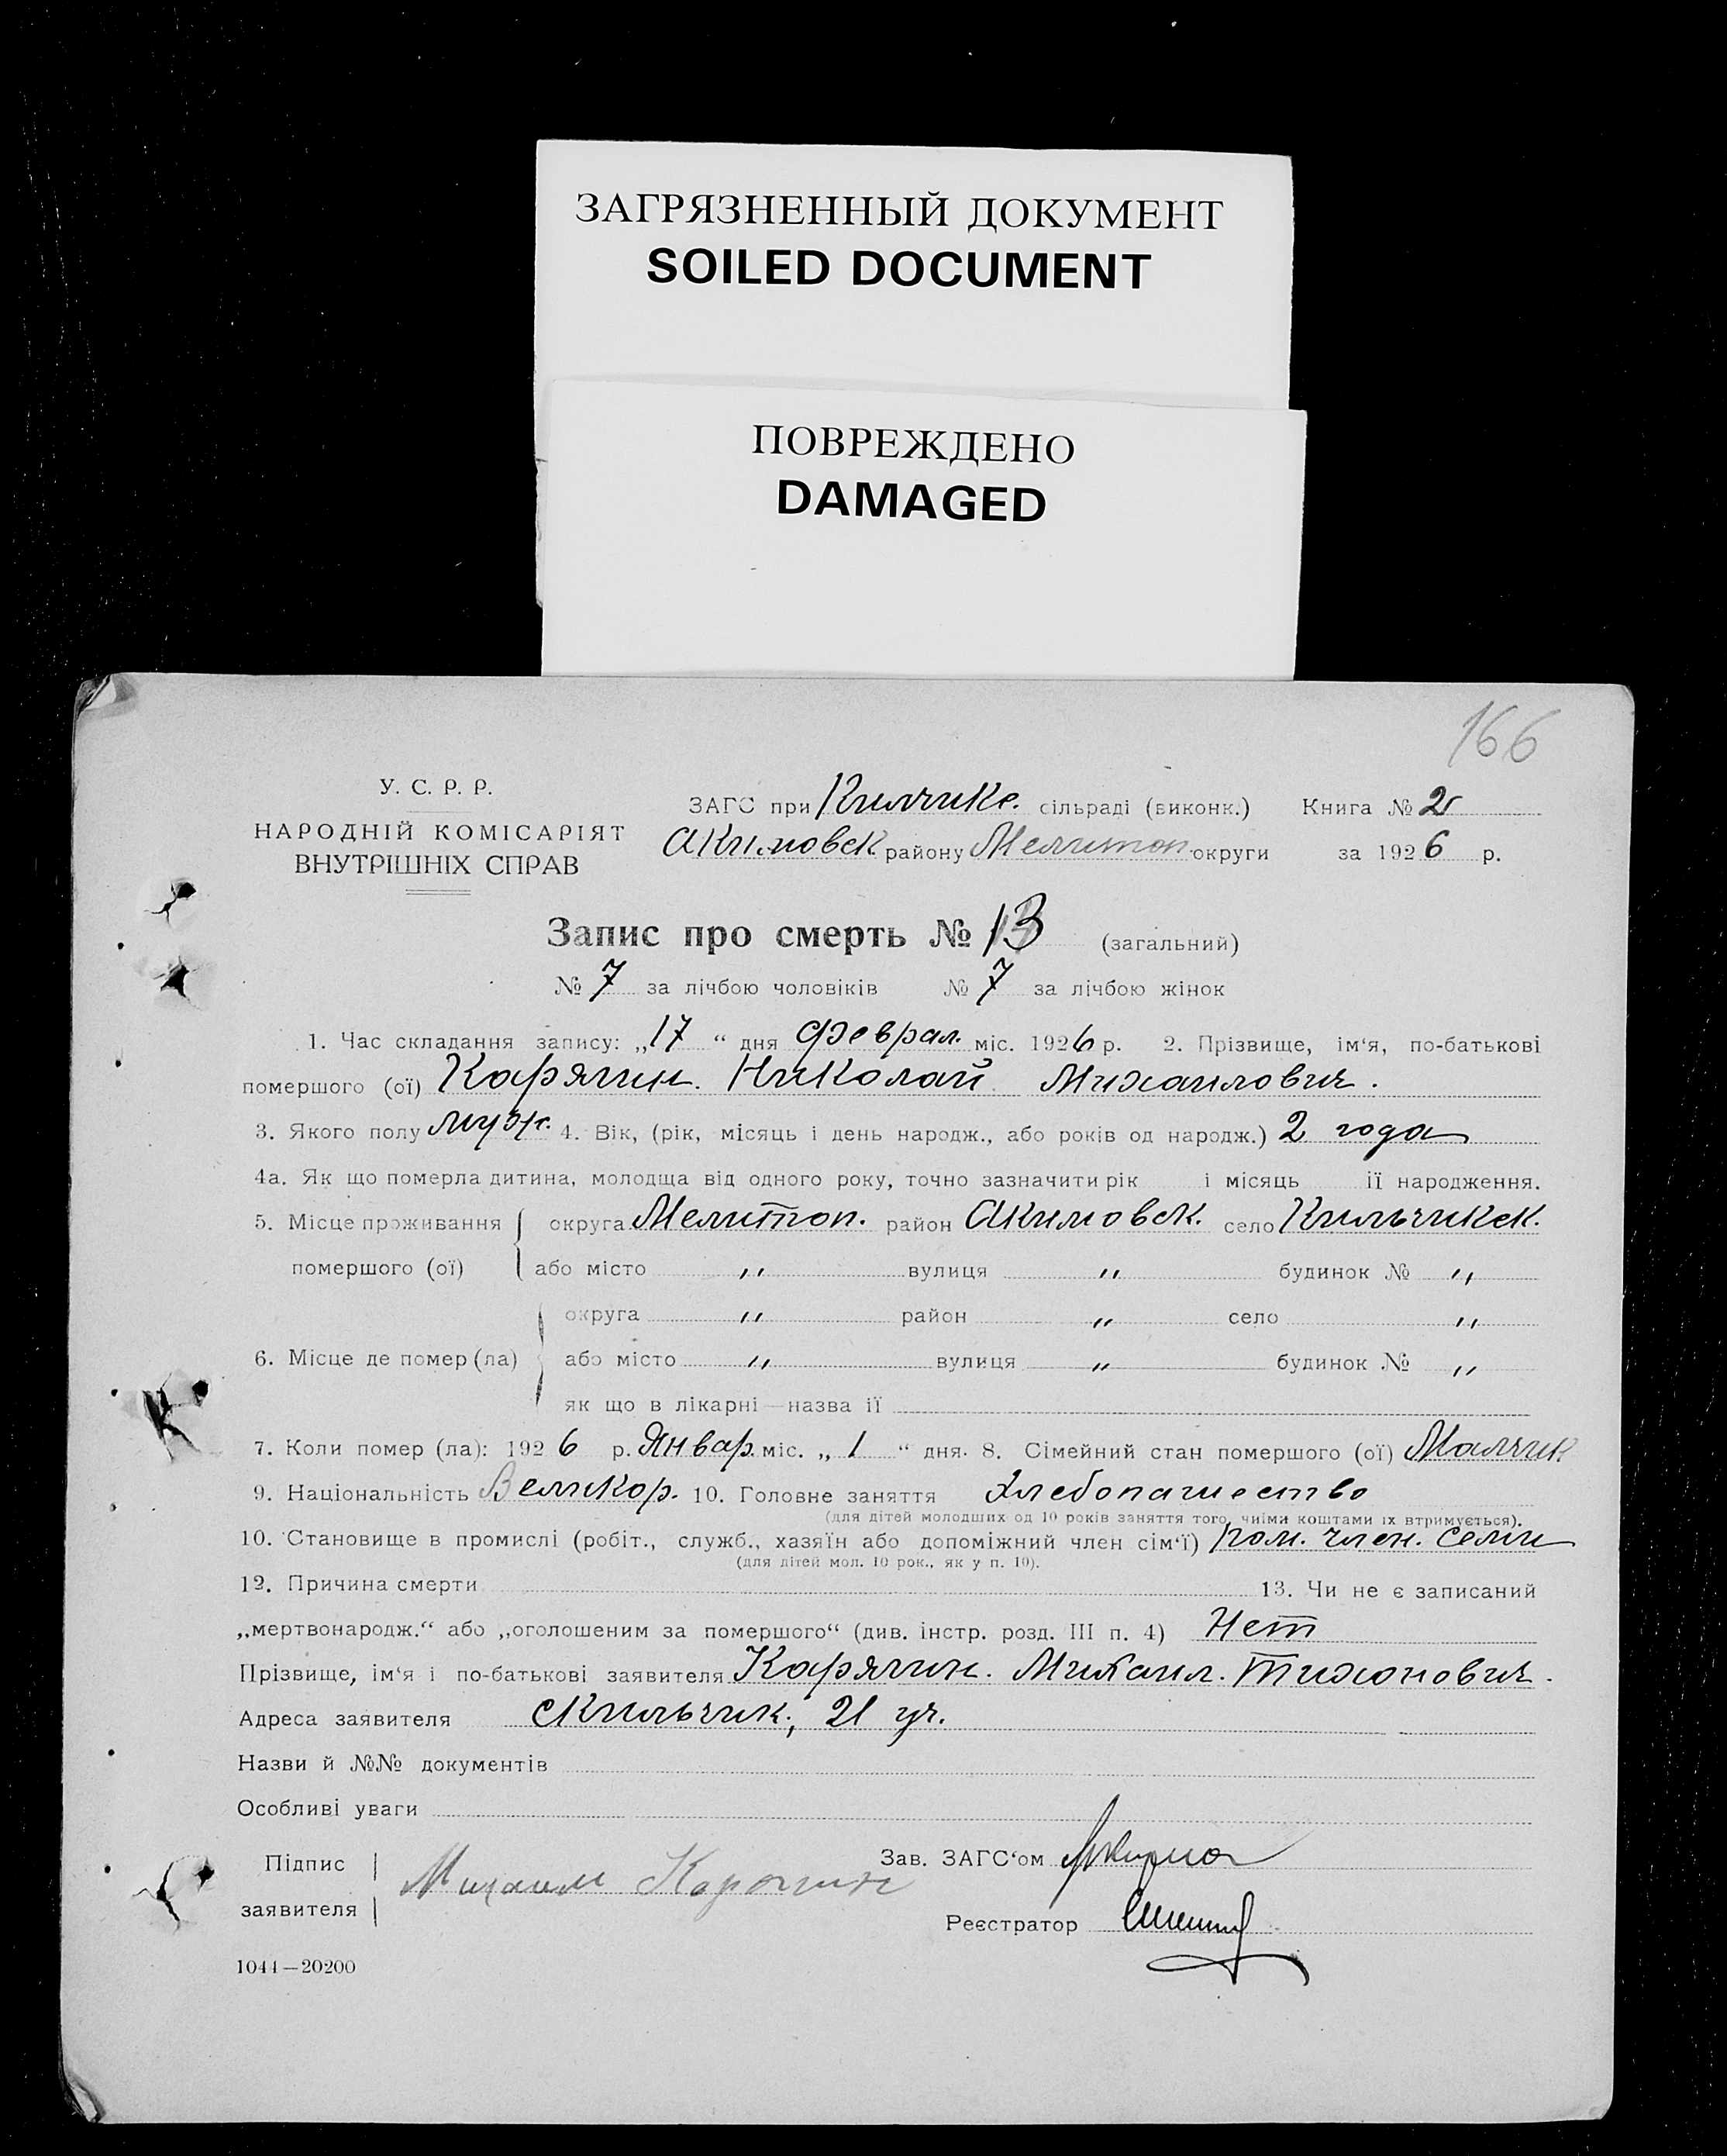 ЗАГРЯЗНЕННЫЙ ДОКУМЕНТ
SOILED DOCUMENT
ПОВРЕЖДЕНО
DAMAGED
166
У. С. Р. Р.
НАРОДНІЙ КОМІСАРІЯТ
ВНУТРІШНІХ СПРАВ
ЗАГС при Килчикс. сільраді (виконк.) Книга № 2
Акимовск району Мелитоп. округи за 1926 р.
Запис про смерть № 13 (загальний)
№ 7 за лічбою чоловіків № 7 за лічбою жінок
1. Час складання запису: „17“ дня Феврал. міс. 1926 р. 2. Прізвище, ім‘я, по-батькові
помершого (ої) Карягин. Николай Михаилович.
3. Якого полу муж. 4. Вік, (рік, місяць і день народж., або років од народж.) 2 года
4а. Як що померла дитина, молодща від одного року, точно зазначити рік і місяць її народження.
5. Місце проживання округа Мелитоп. район Акимовск. село Кильчикск.
помершого (ої) або місто " вулиця " будинок № "
округа " район " село "
6. Місце де помер (ла) або місто " вулиця " будинок № "
як що в лікарні—назва її
7. Коли помер (ла): 1926 р. Январ. міс. „1“ дня. 8. Сімейний стан помершого (ої) Малчик
9. Національність Великор. 10. Головне заняття Хлебопашество
(для дітей молодших од 10 років заняття того, чиїми коштами їх втримується).
10. Становище в промислі (робіт., служб., хазяїн або допоміжний член сім‘ї) пом. член. семи
(для дітей мол. 10 рок., як у п. 10).
12. Причина смерти 13. Чи не є записаний
„мертвонародж.“ або „оголошеним за помершого“ (див. інстр. розд. III п. 4) Нет
Прізвище, ім‘я і по-батькові заявителя Карягин. Михаил. Тихонович.
Адреса заявителя с Кильчик; 21 уч.
Назви й №№ документів
Особливі уваги
Підпис заявителя Михаил Карягин
Зав. ЗАГС‘ом
Реєстратор
1044—20200